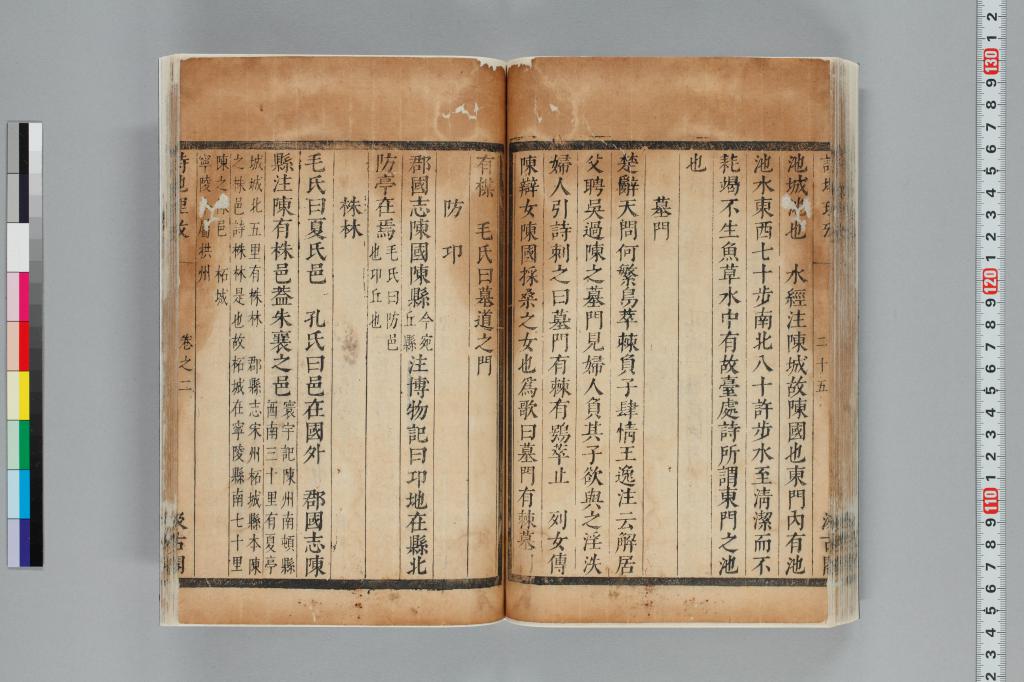 二十五
池城池也　水經注陳城故陳國也東門內有池
池水東西七十步南北八十許步水至清潔而不
耗竭不生魚草水中有故臺處詩所謂東門之池
也
墓門
楚辭天問何繁鳥萃棘負子肆情王逸注云解居
父聘吳過陳之墓門見婦人負其子欲與之淫泆
婦人引詩刺之曰墓門有棘有鴞萃止　列女傳
陳辯女陳國採桑之女也爲歌曰墓門有棘墓
有楳　毛氏曰墓道之門
防印
郡國志陳國陳縣今宛丘縣注博物記曰卭地在縣北
防亭在焉毛氏曰防邑也卭丘也
株林
毛氏曰夏氏邑　孔氏曰邑在國外　郡國志陳
縣注陳有株邑葢朱襄之邑寰宇記陳州南頓縣
西南三十里有夏亭
城城北五里有株林　郡縣志宋州柘城縣本陳
之株邑詩株林是也故柘城在寧陵縣南七十里
陳之株邑　柘城
寧陵　屬拱州
詩地里攷
卷之二
汲古閣